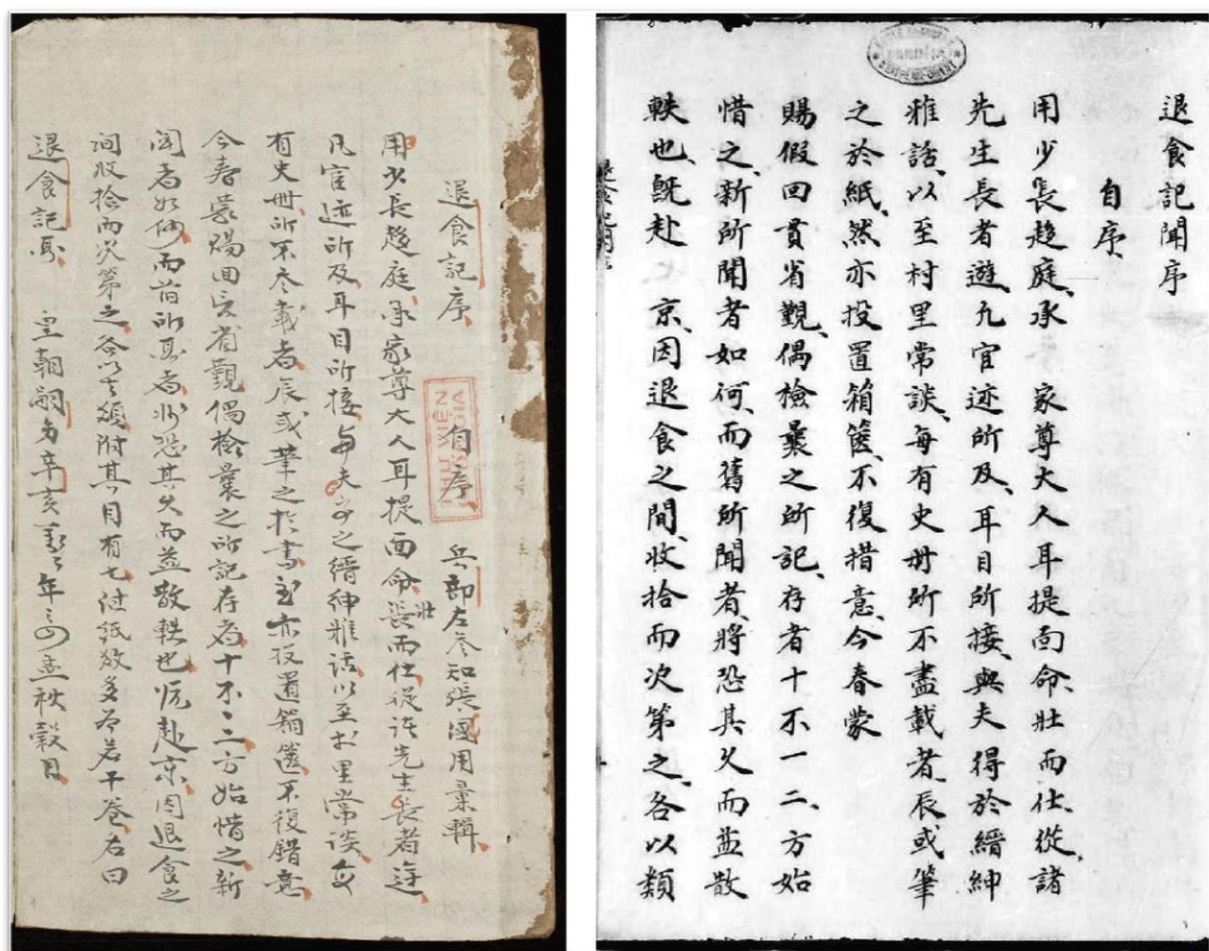 退食記序 自序 兵部左參知張國用彙輯
用少長趨庭承家尊大人耳提面命壯而仕從諸先生長者遊
凡宦迹所及耳目所接每夫得之縉紳雅話以至村里常談每
有史冊所不尽載者辰或筆之於書亦投置箱篋不復錯意
今春蒙賜回貫省覲偶檢曩之所記存者十不一二方始惜之新
聞者如何而旧所聞者將恐其久而益散軼也既赴京因退食之
間收拾而次第之各以類附其目有七付紙数多為若干卷名曰
退食記聞 皇朝嗣 辛亥 年之四孟秋穀日
THƯ VIỆN
GIA
退食記聞序
自序
用少長趨庭承 家尊大人耳提面命壯而仕從諸
先生長者遊凡宦迹所及耳目所接與夫得於縉紳
雅話以至村里常談每有史冊所不盡載者辰或筆
之於紙然亦投置箱篋不復措意今春蒙
賜假回貫省覲偶檢曩之所記存者十不一二方始
惜之新所聞者如何而舊所聞者將恐其久而益散
軼也既赴 京因退食之間收拾而次第之各以類